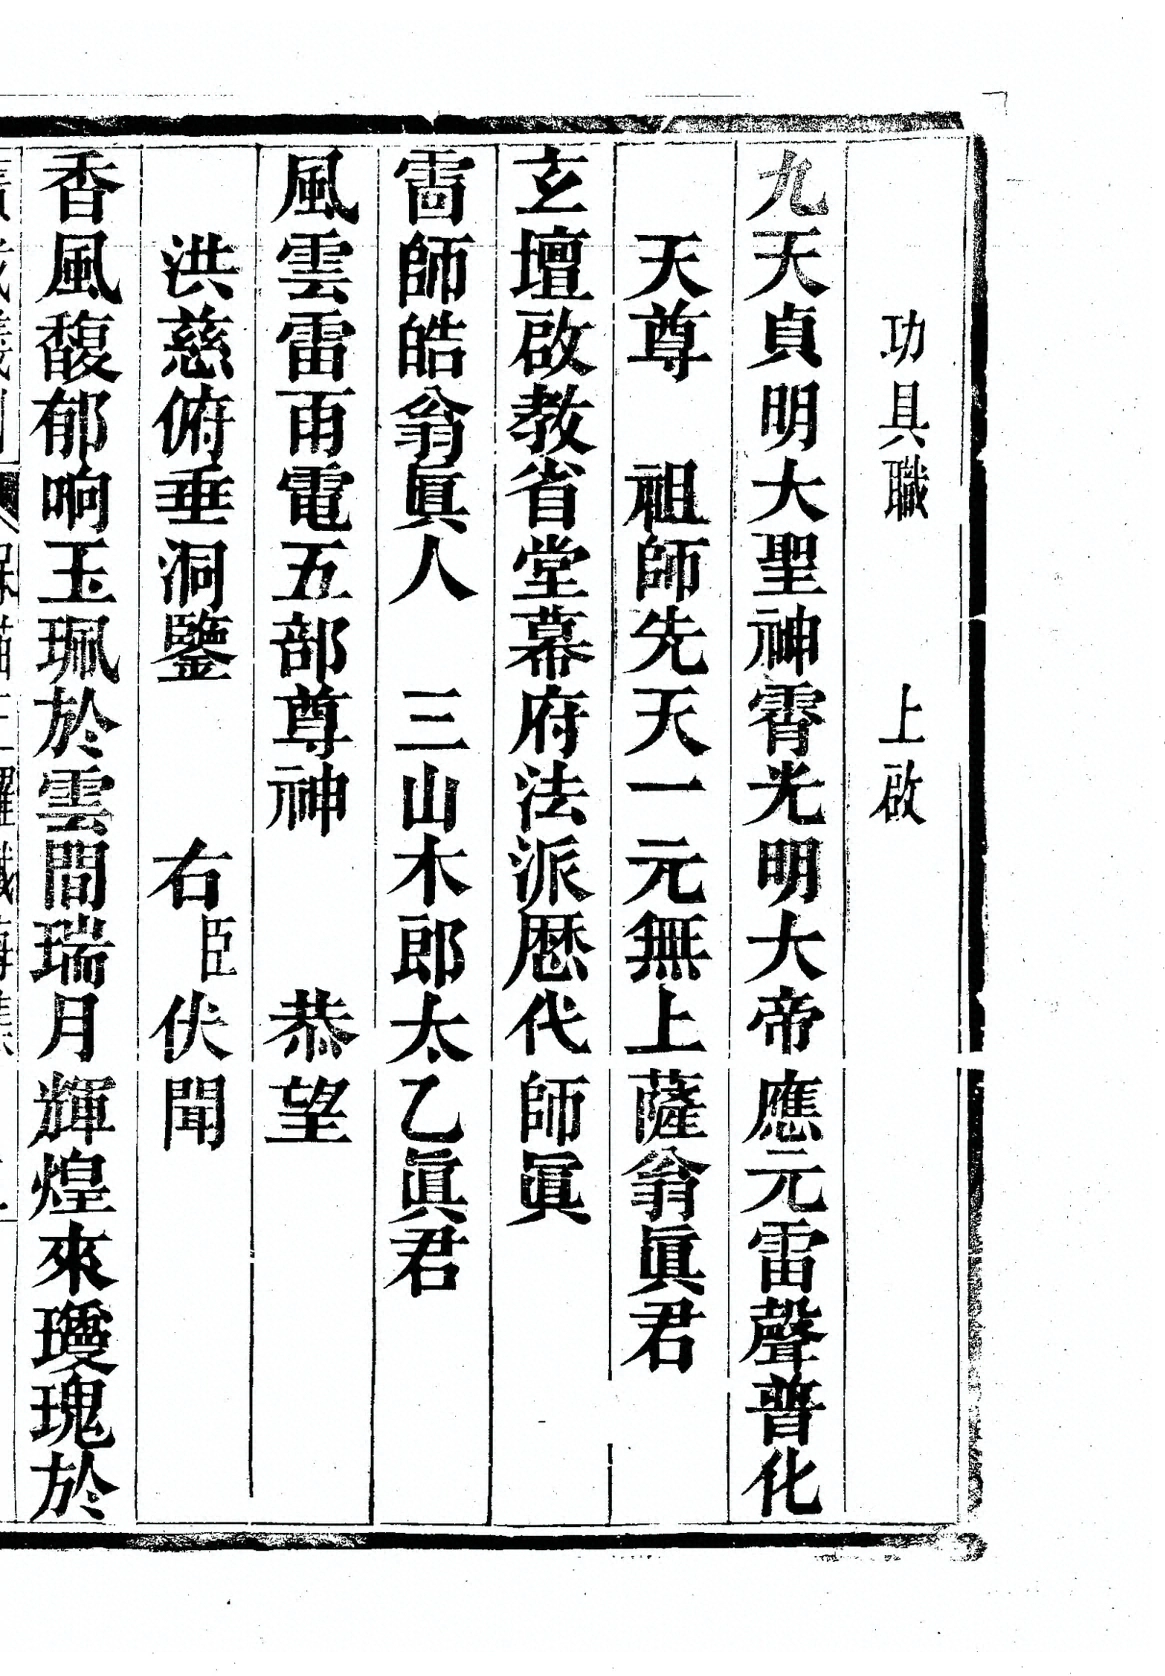 功具職　　上啟
九天貞明大聖神霄光明大帝應元雷聲普化
天尊　祖師先天一元無上薩翁眞君
玄壇啟教省堂幕府法派歷代師眞
雷師皓翁眞人　三山木郎太乙眞君
風雲雷雨電五部尊神　　恭望
洪慈俯垂洞鑒　　右臣伏聞
香風馥郁响玉珮於雲間瑞月輝煌來瓊瑰於